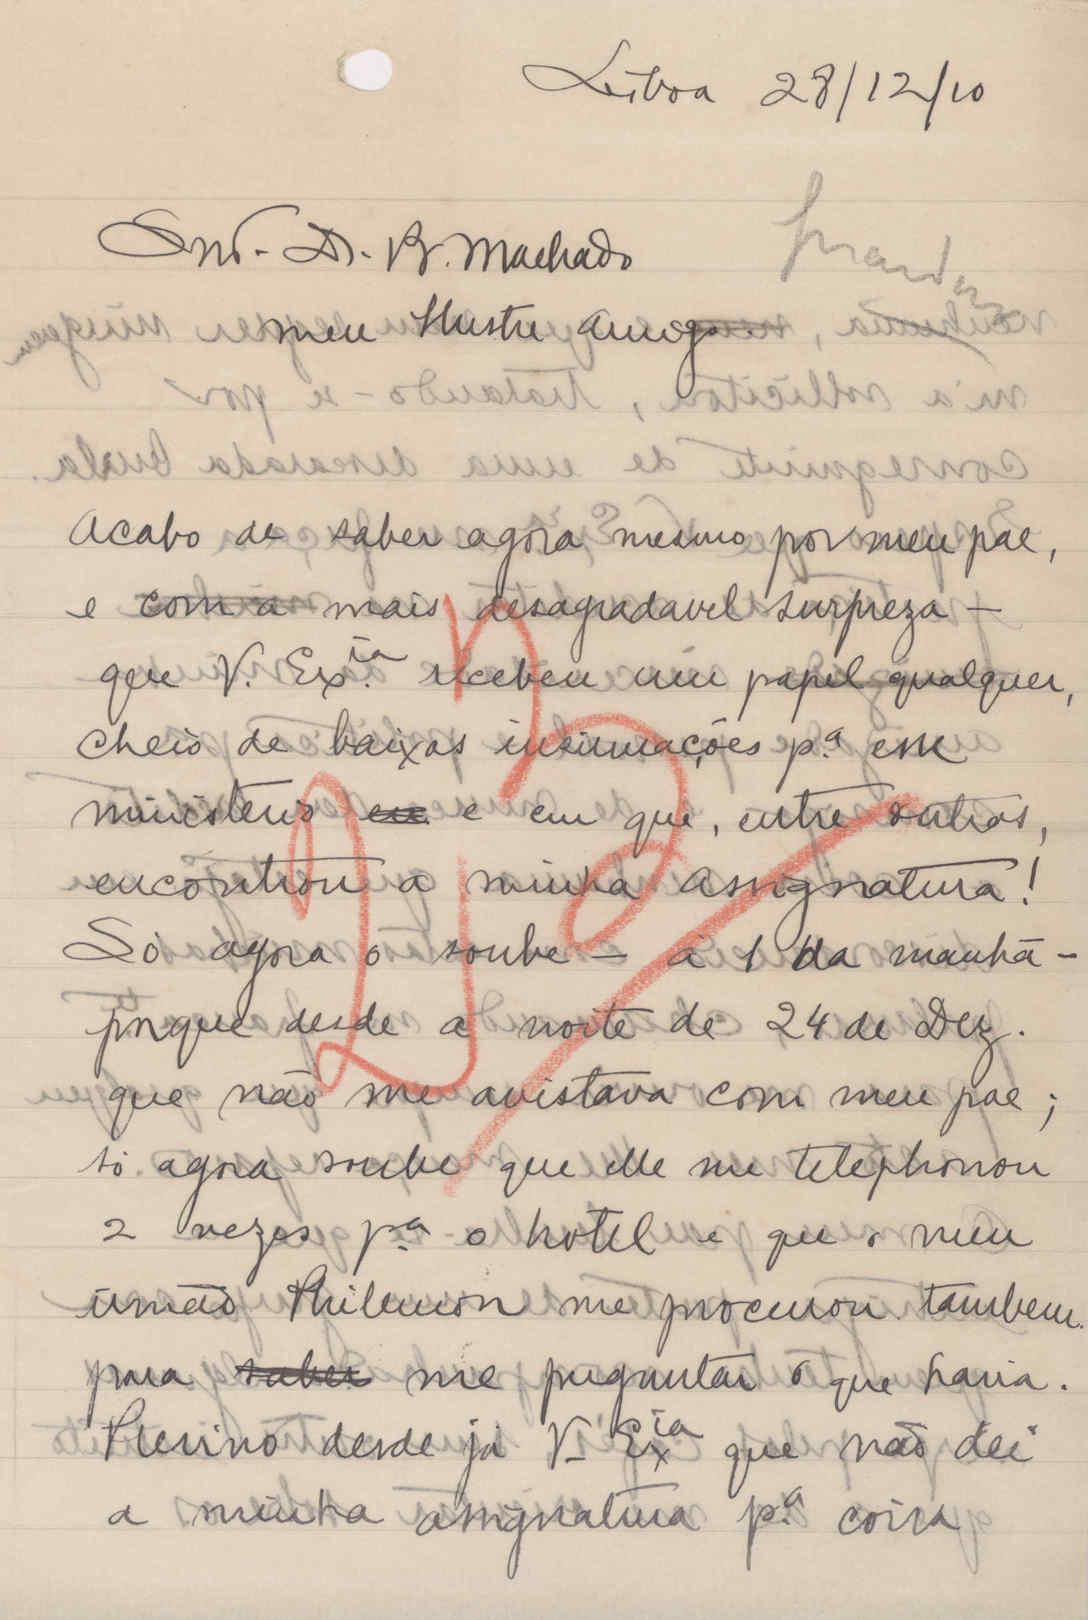 Lisboa 28/12/10
Snr. Dr. B. Machado
meu Illustre Amigo.
Acabo de saber agora mesmo por meu pae,
e com a mais desagradavel surpreza —
que V. Ex.ia recebeu um papel qualquer,
cheio de baixas insinuações p.a esse
ministerio e em que, entre outras,
encontrou a minha assignatura!
Só agora o soube — á 1 da manhã —
porque desde a noite de 24 de Dez.
que não me avistava com meu pae;
só agora soube que elle me telephonou
2 vezes p.a o hotel e que o meu
irmão Philemon me procurou tambem
para saber me preguntar o que havia.
Previno desde já V. Ex.ia que não dei
a minha assignatura p.a coisa